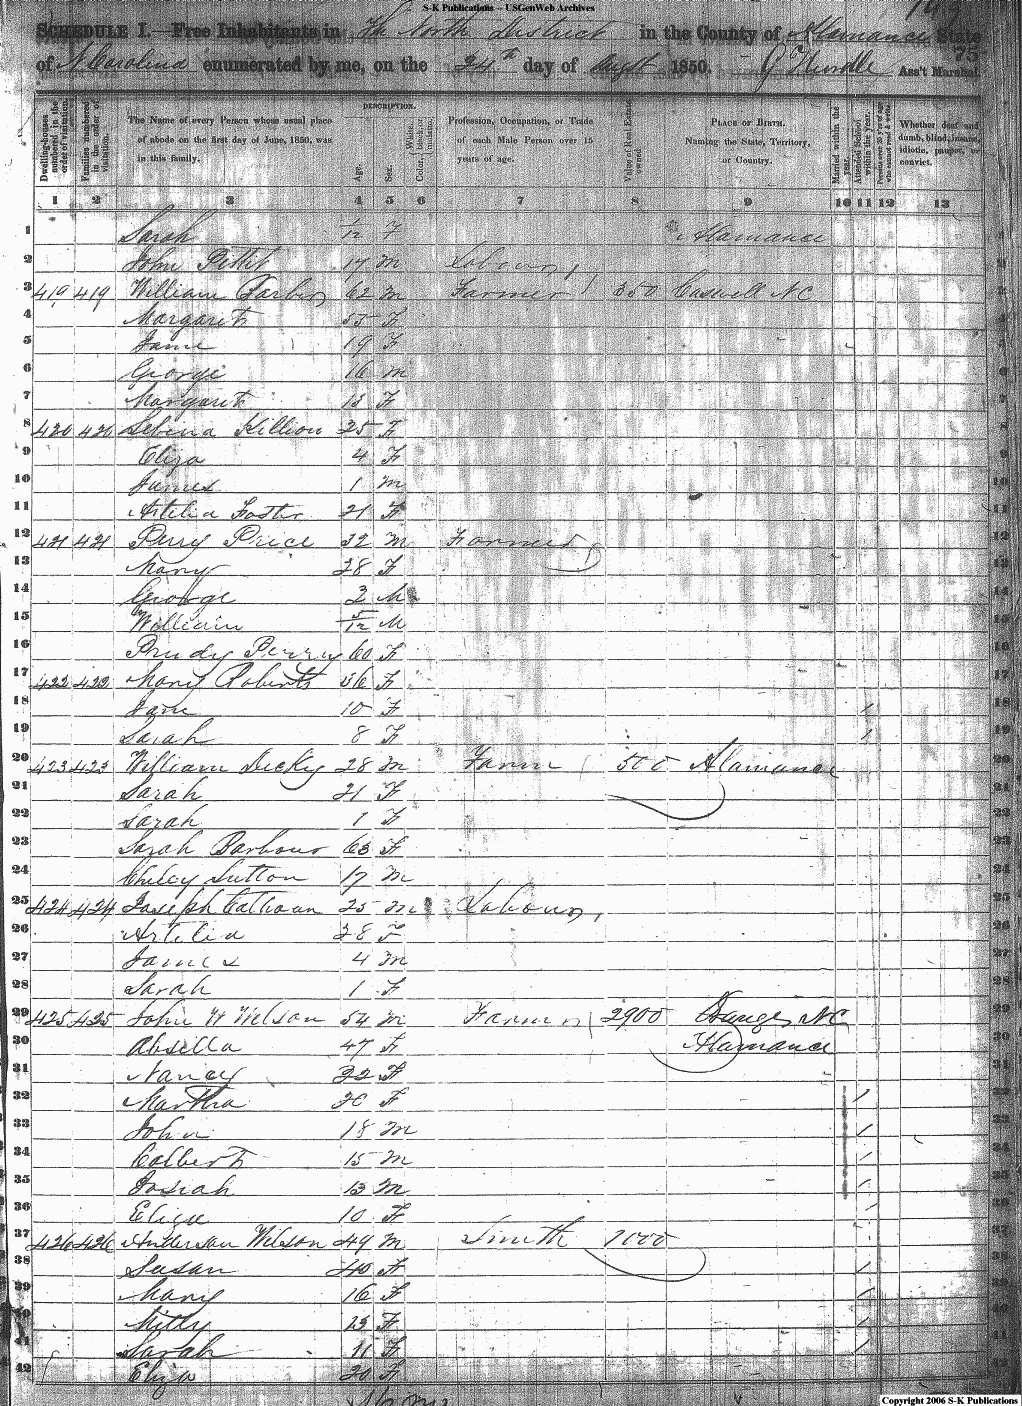 S-K Publications – USGenWeb Archives
SCHEDULE I.—Free Inhabitants in The North District in the County of Alamance State
of N Carolina enumerated by me, on the 24th day of Augst 1850. Ass't Marshal.
75
Dwelling-houses numbered in the order of visitation.
Families numbered in the order of visitation.
The Name of every Person whose usual place of abode on the first day of June, 1850, was in this family.
DESCRIPTION.
Age.
Sex.
Color, White, black, or mulatto.
Profession, Occupation, or Trade of each Male Person over 15 years of age.
Value of Real Estate owned
PLACE OF BIRTH. Naming the State, Territory, or Country.
Married within the year.
Attended School within the year.
Persons over 20 y'rs of age who cannot read & write.
Whether deaf and dumb, blind, insane, idiotic, pauper, or convict.
1 2 3 4 5 6 7 8 9 10 11 12 13
1 Sarah 1/12 F Alamance 1
2 John Pettit 17 M Labourer 2
3 419 419 William 62 M Farmer 350 Caswell NC 3
4 Margaret 55 F 4
5 Jane 19 F 5
6 George 16 M 6
7 Margaret 13 F 7
8 420 420 Killion 25 F 8
9 Eliza 4 F 9
10 James 1 M 10
11 Artelia Foster 21 F 11
12 421 421 Perry Price 32 M Farmer 12
13 Mary 28 F 13
14 George 2 M 14
15 William 5/12 M 15
16 Prudy Perry 60 F 16
17 422 422 Mary Roberts 56 F 17
18 Jane 10 F / 18
19 Sarah 8 F / 19
20 423 423 William Dicky 28 M Farmer 500 Alamance 20
21 Sarah 21 F 21
22 Sarah 1 F 22
23 Sarah Barbour 63 F 23
24 Sutton 17 M 24
25 424 424 Joseph Calhoun 25 M Labourer 25
26 Artelia 28 F 26
27 James 4 M 27
28 Sarah 1 F 28
29 425 425 John W Wilson 54 M Farmer 2900 Orange NC 29
30 Absella 47 F Alamance 30
31 Nancy 22 F 31
32 Martha 20 F / 32
33 John 18 M / 33
34 Colbert 15 M / 34
35 Josiah 13 M / 35
36 Eliza 10 F / 36
37 426 426 Anderson Wilson 49 M Smith 1000 37
38 Susan 40 F / 38
39 Mary 16 F / 39
40 Milly 13 F / 40
41 Sarah 11 F / 41
42 Eliza 20 F 42
Copyright 2006 S-K Publications